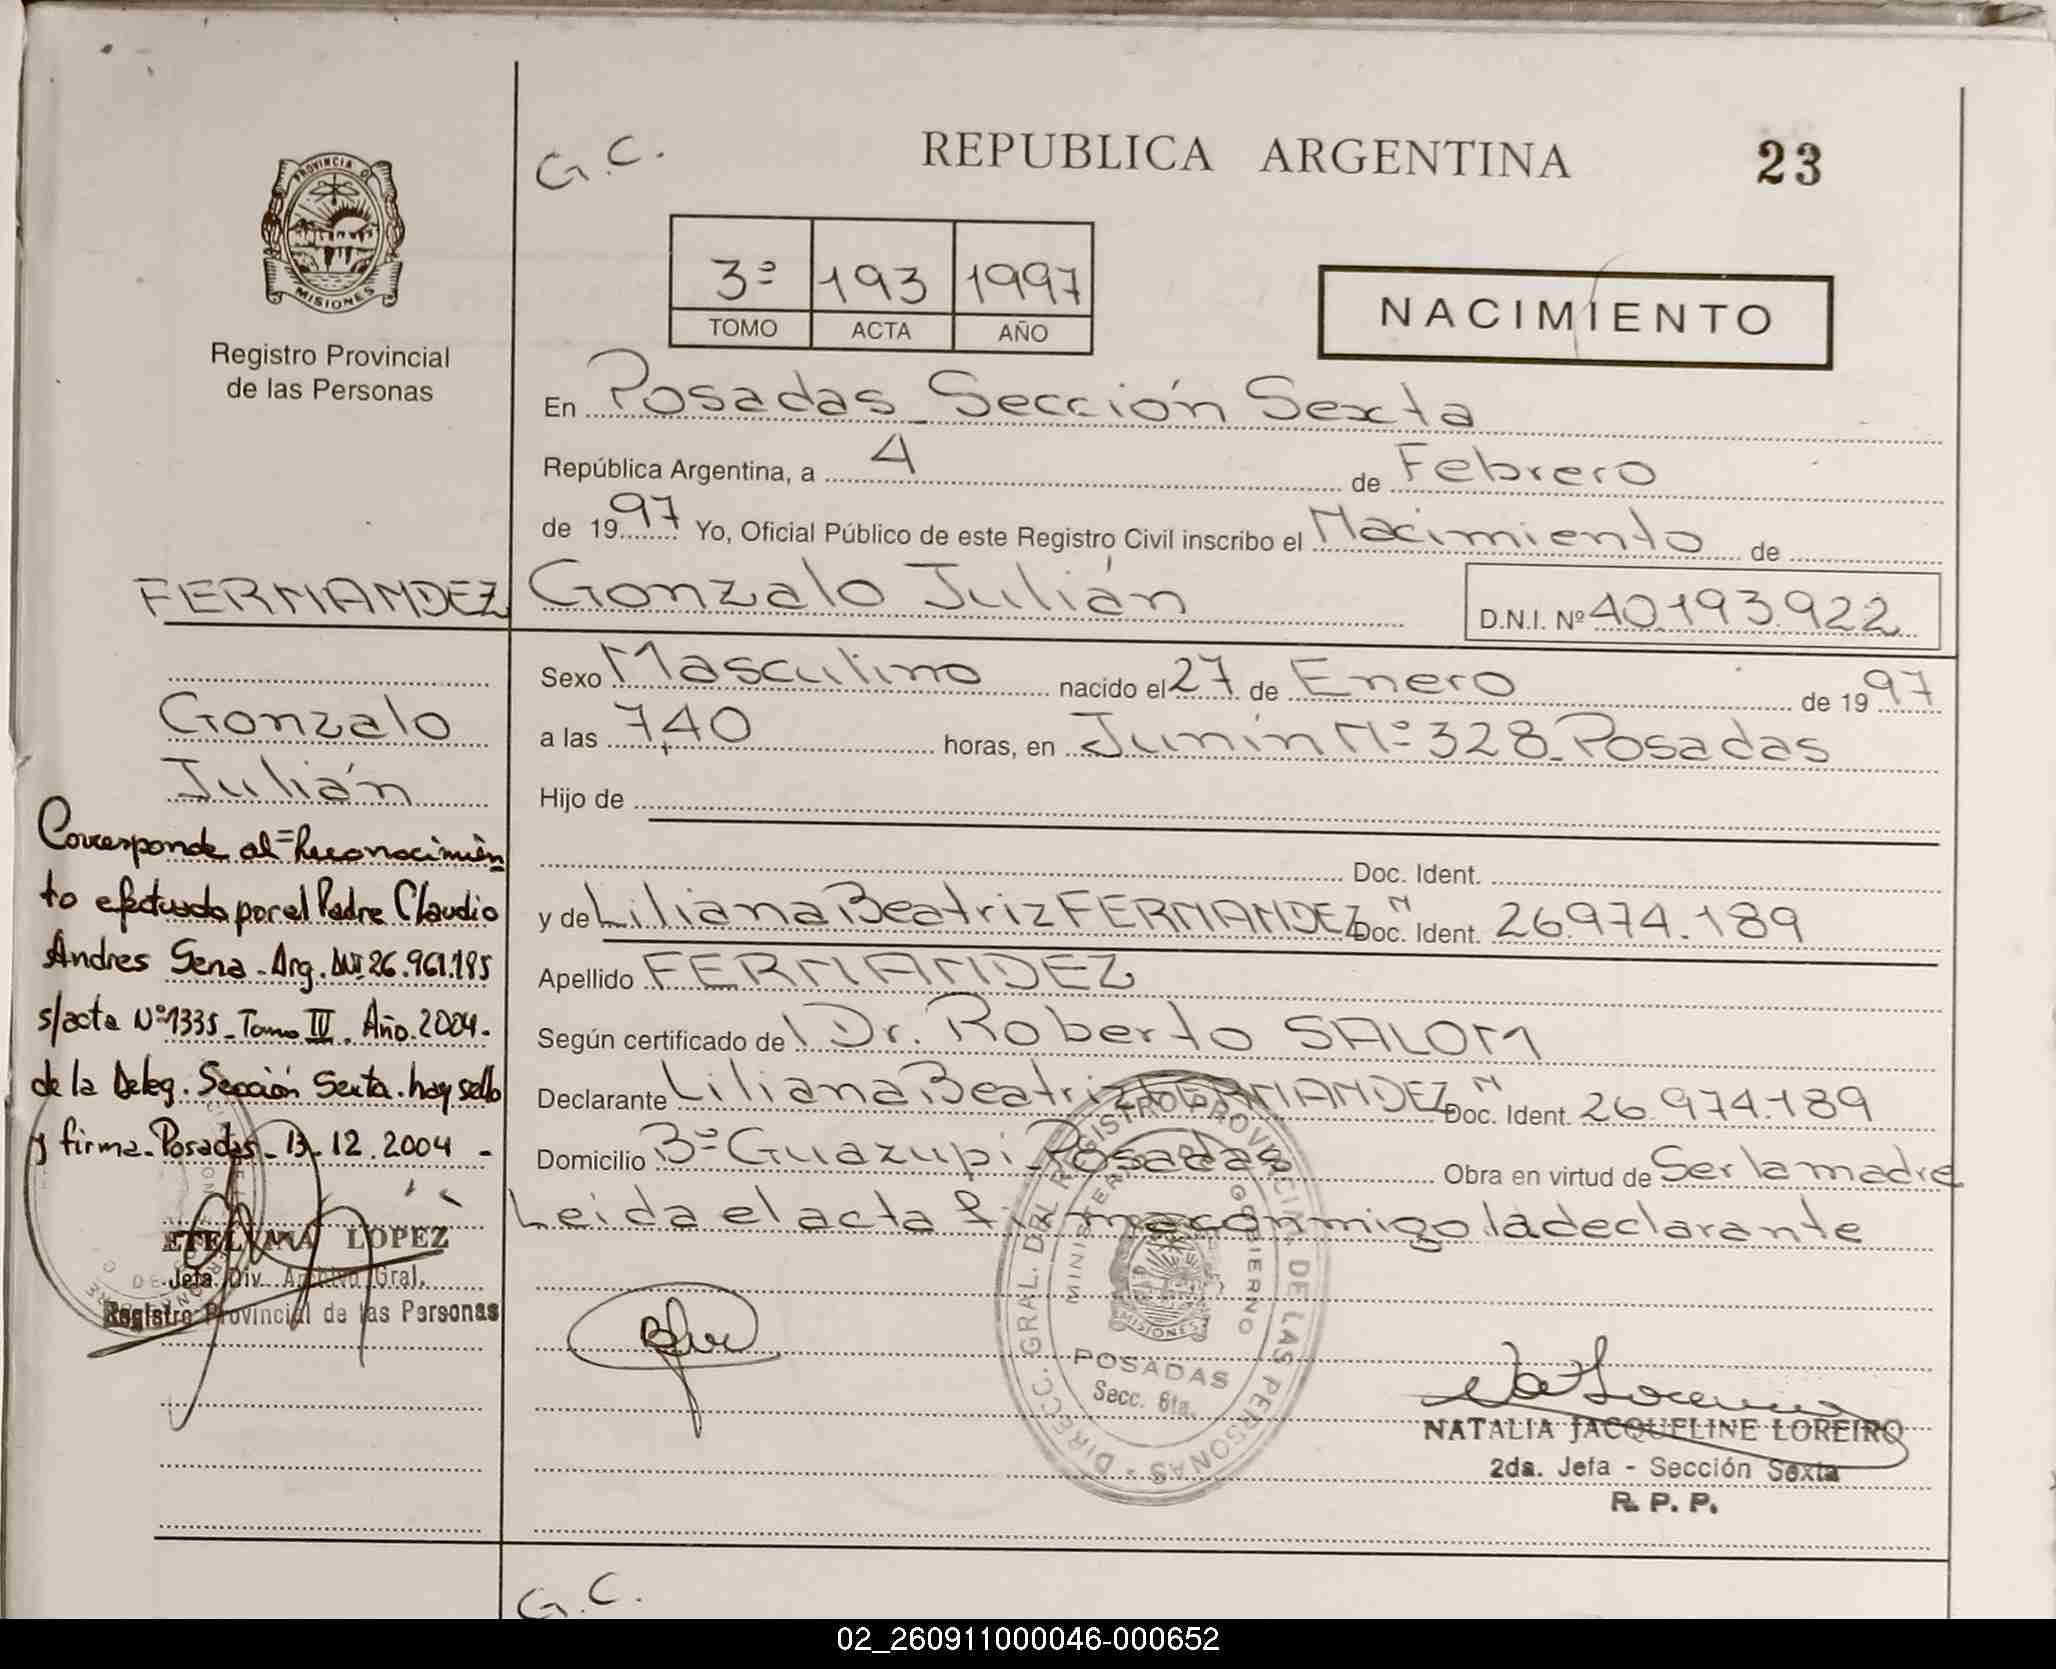 G. C.
REPUBLICA ARGENTINA
23
PROVINCIA DE
MISIONES
Registro Provincial
de las Personas
3º 193 1997
TOMO ACTA AÑO
NACIMIENTO
En Posadas_Sección Sexta
República Argentina, a 4 de Febrero
de 1997 Yo, Oficial Público de este Registro Civil inscribo el Nacimiento de
Gonzalo Julián
D.N.I. Nº 40.193.922
Sexo Masculino nacido el 27 de Enero de 1997
a las 7,40 horas, en Junín Nº 328_Posadas
Hijo de
Doc. Ident.
y de Liliana Beatriz FERNANDEZ Doc. Ident. N 26.974.189
Apellido FERNANDEZ
Según certificado del Dr. Roberto SALOM
Declarante Liliana Beatriz FERNANDEZ Doc. Ident. N 26.974.189
Domicilio Bº Guazupi_Posadas Obra en virtud de Ser la madre
Leida el acta firma conmigo la declarante
FERNANDEZ
Gonzalo
Julián
Corresponde al=Reconocimien
to efectuado por el Padre Claudio
Andres Sena-Arg. DNI 26.961.185
s/acta Nº1335-Tomo IV. Año.2004.
de la Deleg. Sección Sexta. hay sello
y firma-Posadas-13.12.2004 -
ETELVINA LOPEZ
Jefa Div. Archivo Gral.
Registro Provincial de las Personas
DIRECC. GRAL. DEL REGISTRO PROVINCIAL DE LAS PERSONAS
MINISTERIO GOBIERNO
MISIONES
POSADAS
Secc. 6ta.
NATALIA JACQUELINE LOREIRO
2da. Jefa - Sección Sexta
R. P. P.
G. C.
02_260911000046-000652